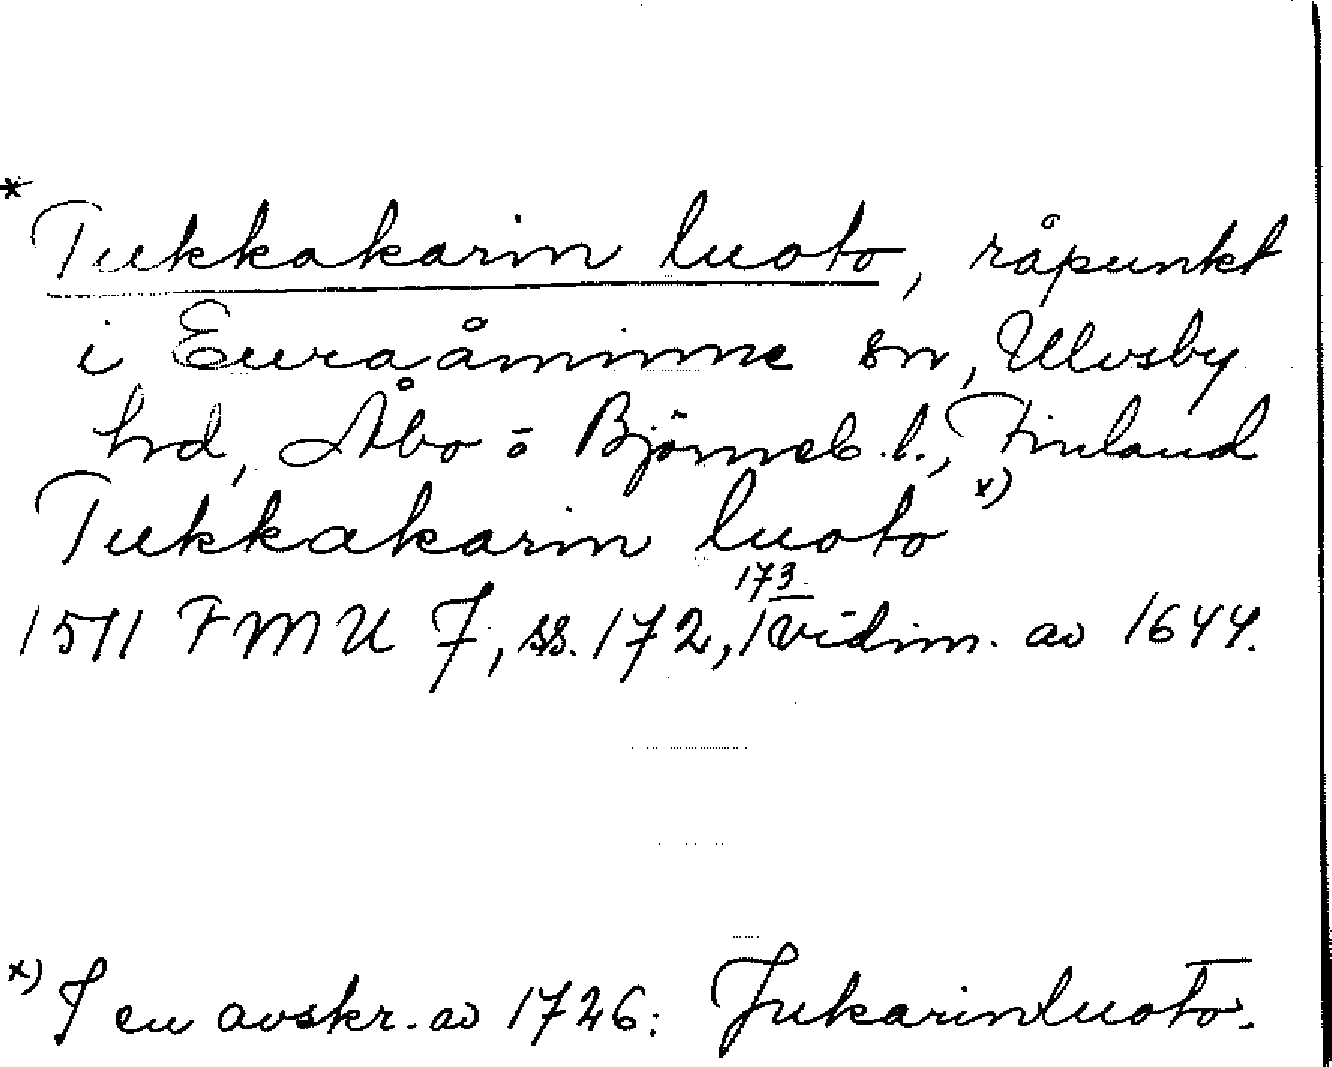 * Tukkakarin luoto, råpunkt
i Euraåminne sn, Ulvsby
hd, Åbo o Björneb. l., Finland
Tukkakarin luoto x)
1511 FMU 7, ss. 172, 173 vidim. av 1644.
x) I en avskr. av 1726: Jukarinluoto.